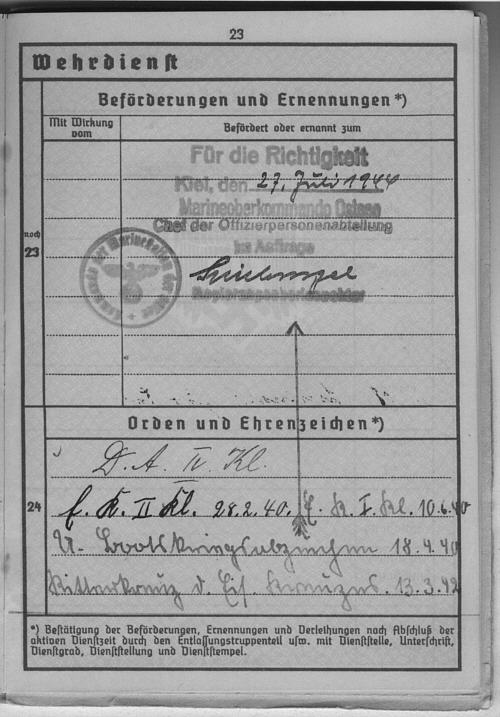 23
Wehrdienst
Beförderungen und Ernennungen*)
Mit Wirkung vom
Befördert oder ernannt zum
Für die Richtigkeit
Kiel, den 27. Juli 1944
Marineoberkommando Ostsee
Chef der Offizierpersonenabteilung
Im Auftrage
noch
23
Orden und Ehrenzeichen*)
D. A. IV. Kl.
24
E. K. II Kl. 28.2.40. E. K. I. Kl. 10.6.40
U-Bootskriegsabzeichen 18.4.40
Ritterkreuz d. Eis. Kreuzes. 13.3.42
*) Bestätigung der Beförderungen, Ernennungen und Verleihungen nach Abschluß der
aktiven Dienstzeit durch den Entlassungstruppenteil usw. mit Dienststelle, Unterschrift,
Dienstgrad, Dienststellung und Dienststempel.